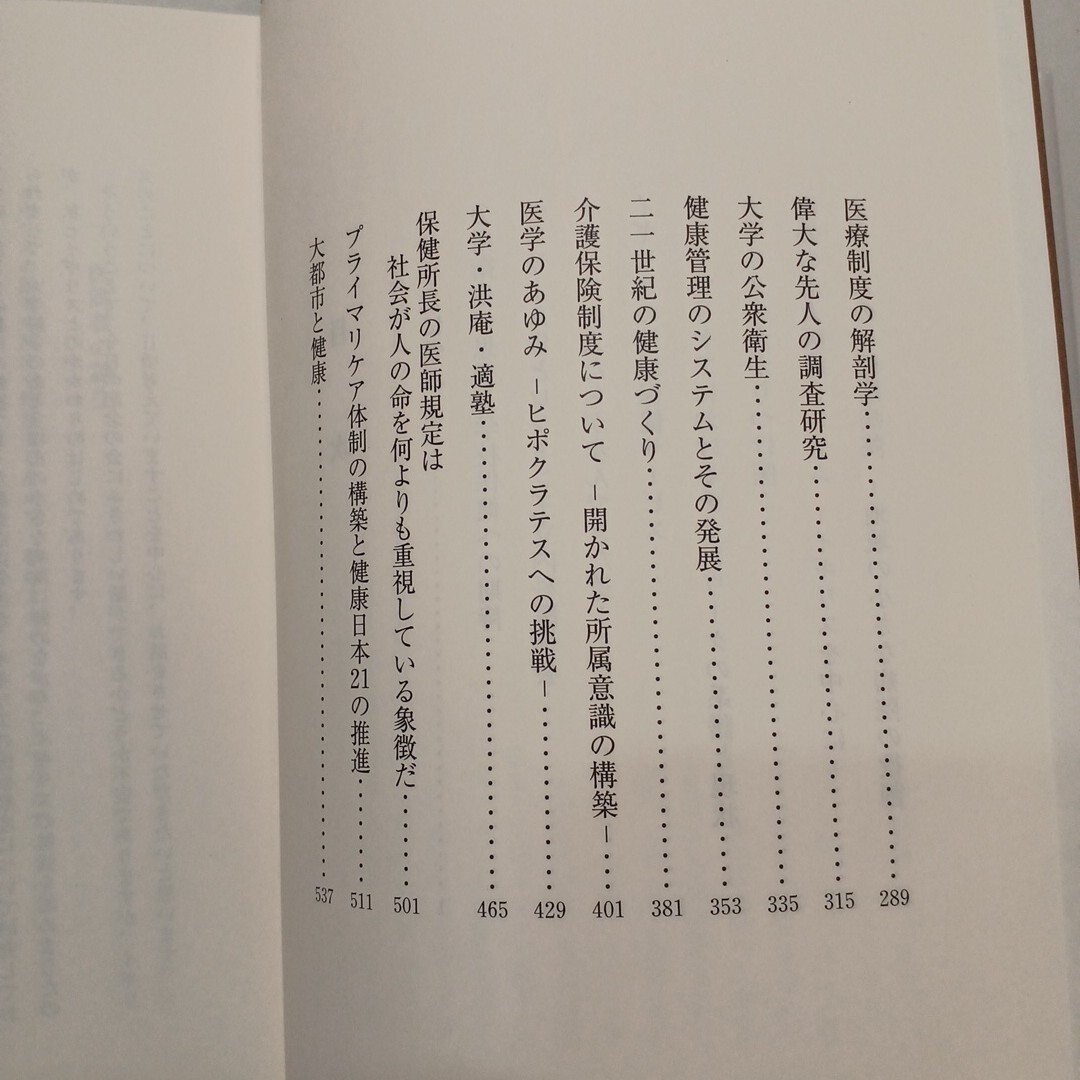 医療制度の解剖学……………………289
偉大な先人の調査研究……………………315
大学の公衆衛生……………………335
健康管理のシステムとその発展……………………353
二一世紀の健康づくり……………………381
介護保険制度について －開かれた所属意識の構築－……401
医学のあゆみ －ヒポクラテスへの挑戦－……………………429
大学・洪庵・適塾……………………465
保健所長の医師規定は
社会が人の命を何よりも重視している象徴だ…………501
プライマリケア体制の構築と健康日本21の推進…………511
大都市と健康……………………537